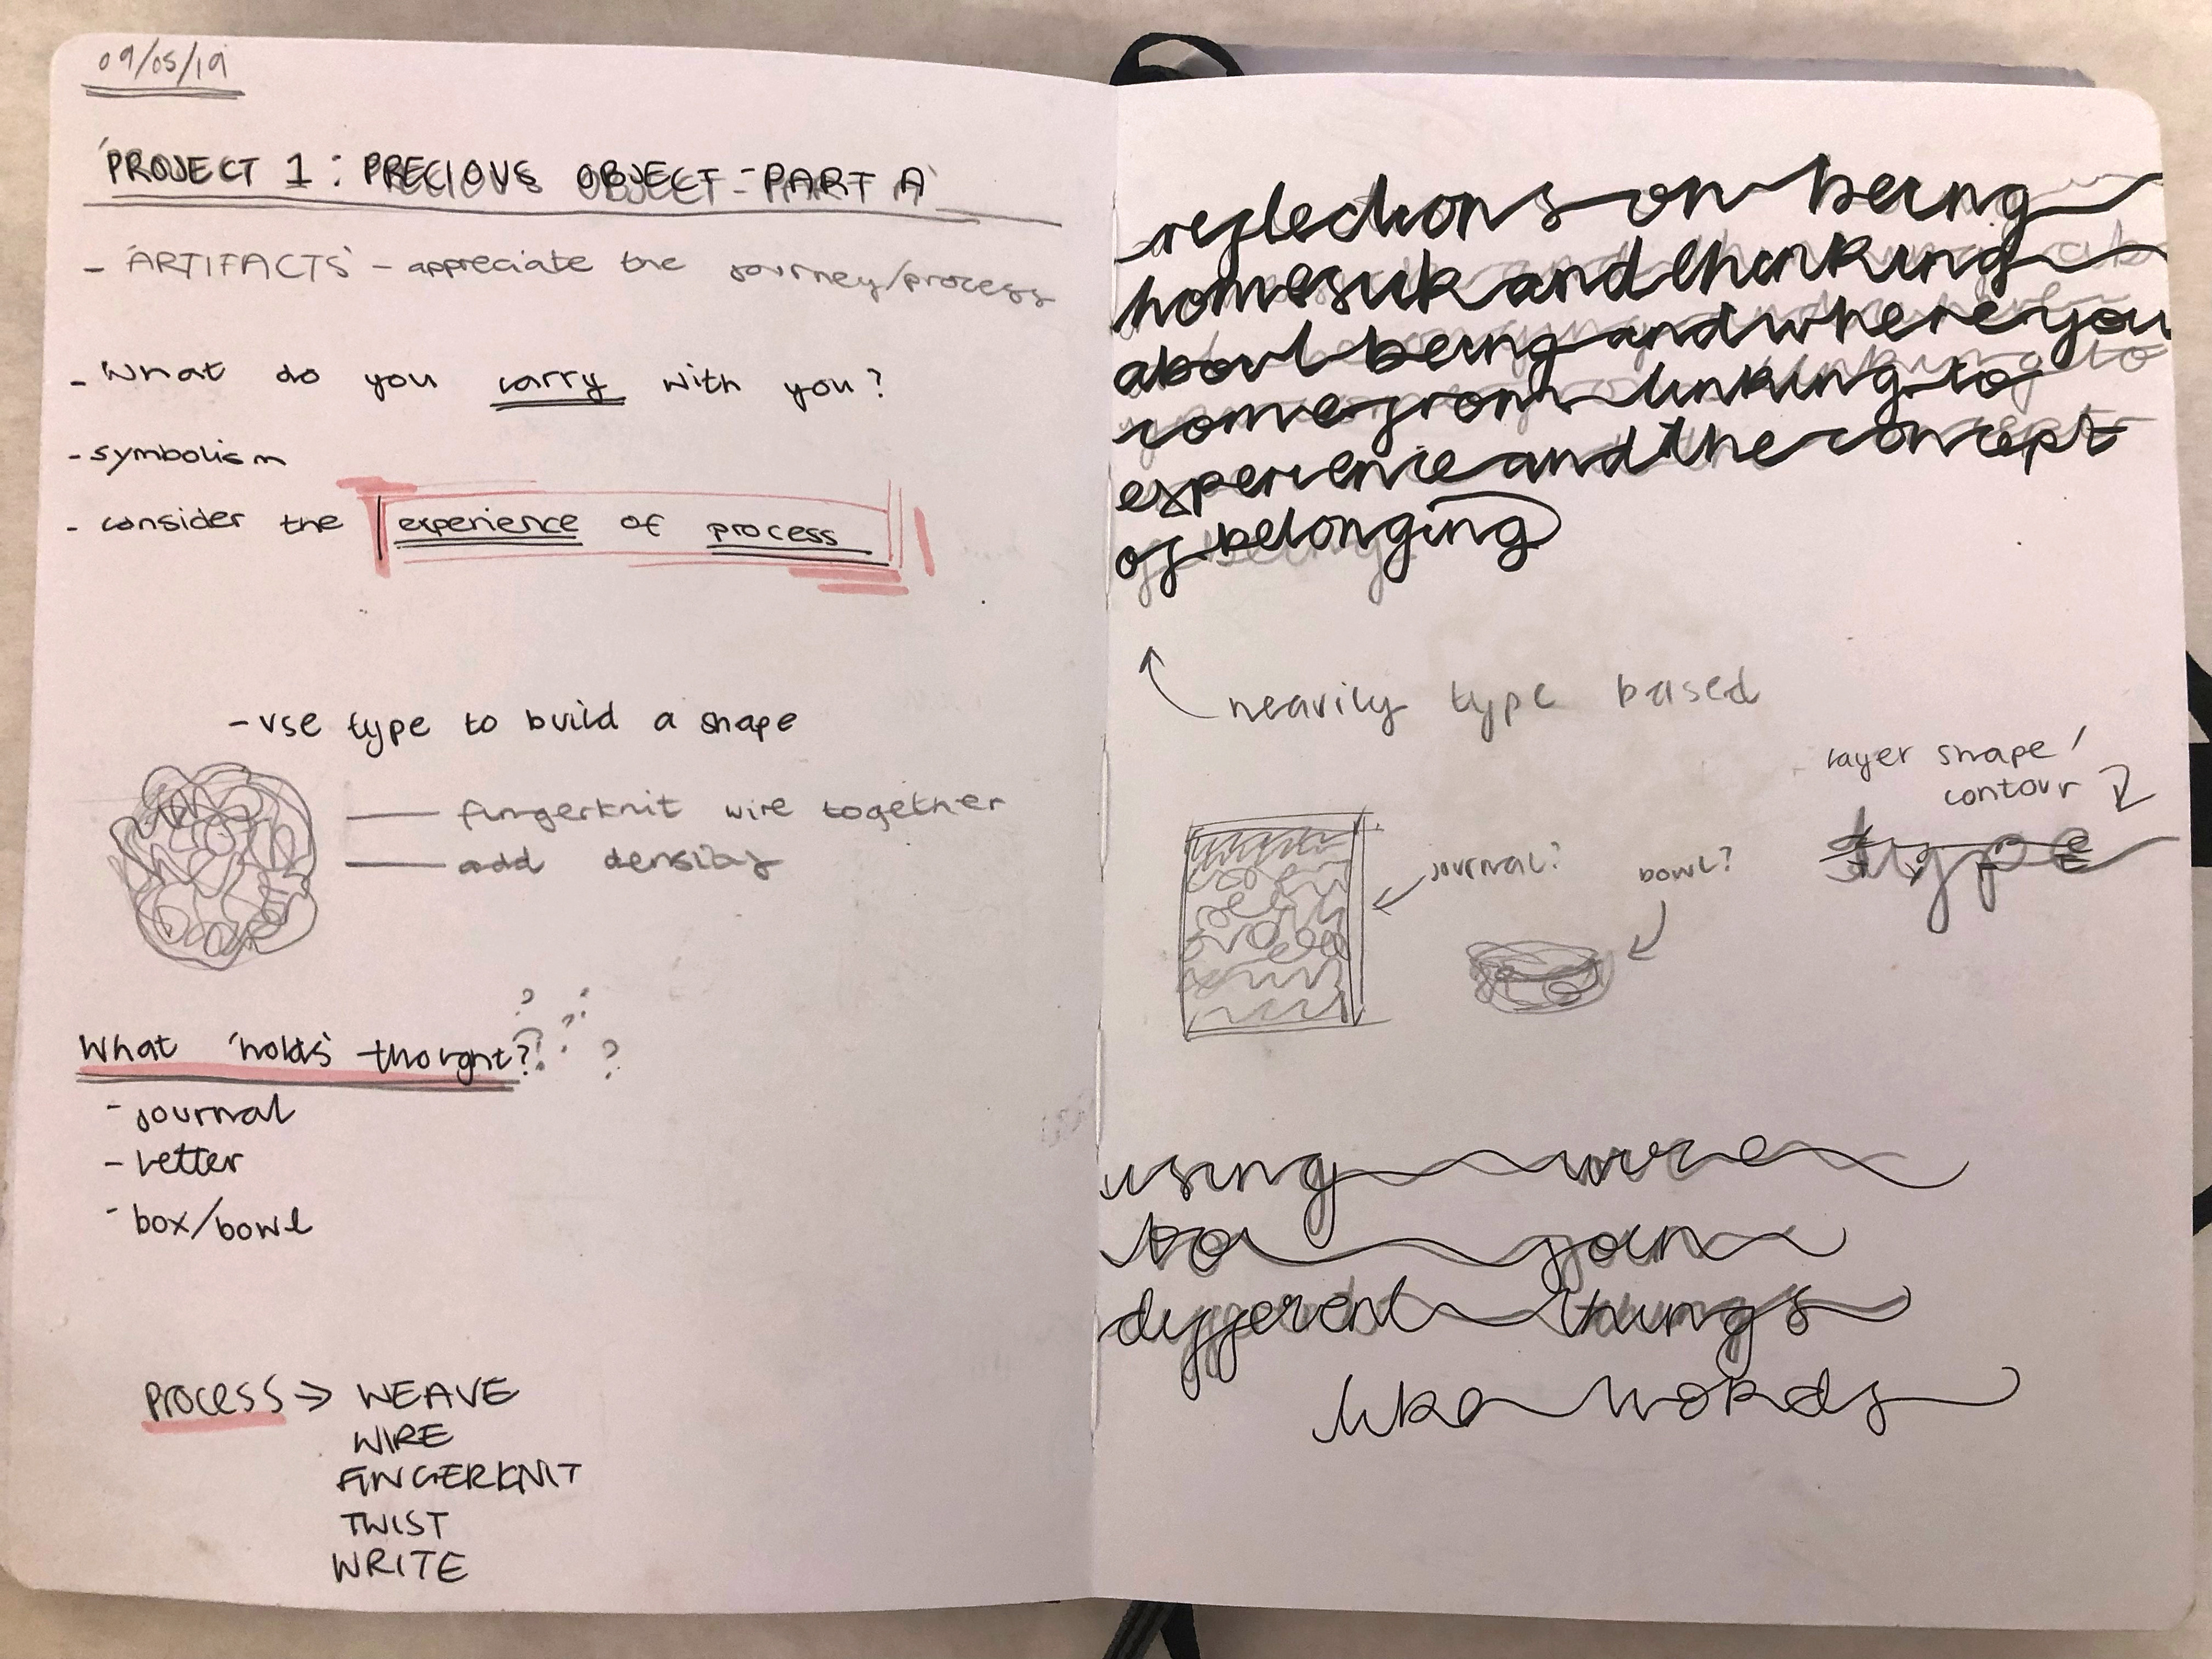 09/05/19
'PROJECT 1: PRECIOUS OBJECT - PART A'
- 'ARTIFACTS' - appreciate the journey/process
- What do you carry with you?
- symbolism
- consider the experience of process
- use type to build a shape
fingerknit wire together
add density
What 'holds' thought?
? ? ? ? ?
- journal
- letter
- box/bowl
PROCESS → WEAVE
WIRE
FINGERKNIT
TWIST
WRITE
reflections on being
homesick and thinking
about being and where you
come from linking to
experience and the concept
of belonging
heavily type based
layer shape/
contour
type
journal?
bowl?
using wire
to join
different things
like words